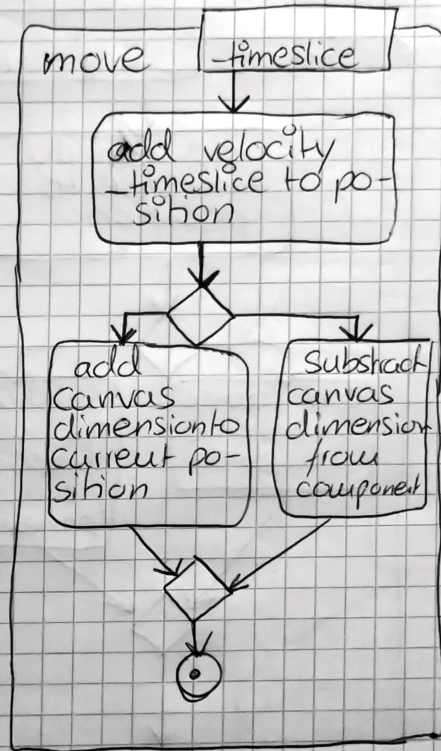 move
_timeslice
add velocity
_timeslice to po-
sition
add
canvas
dimensionto
current po-
sition
Substract
canvas
dimension
from
component